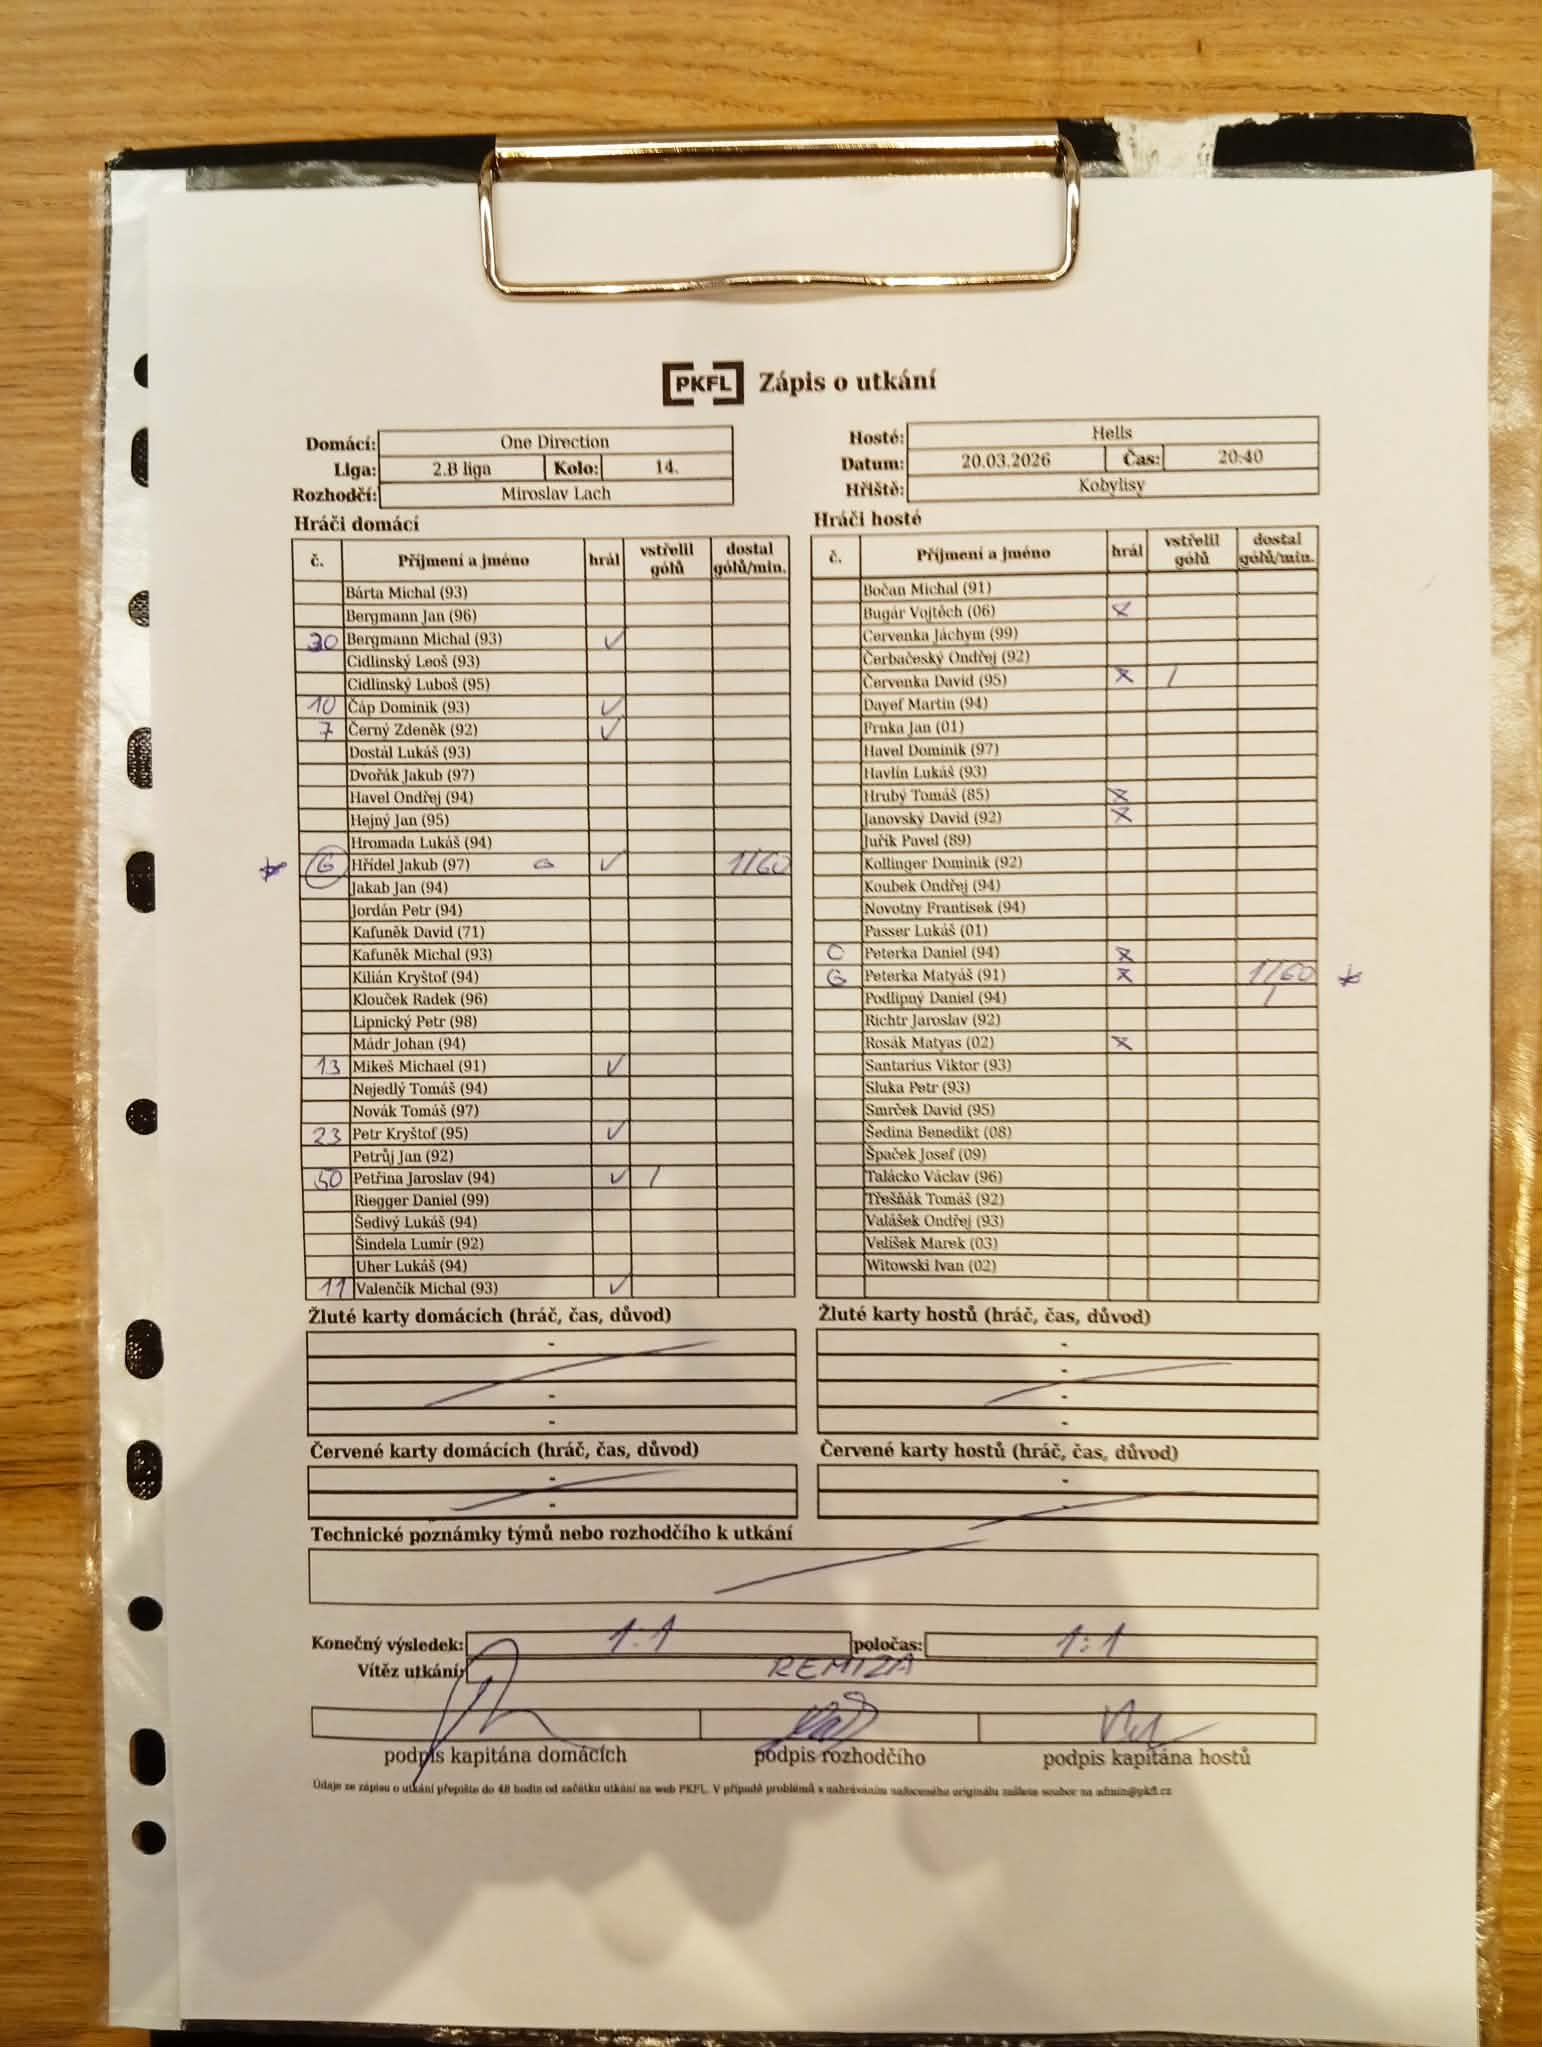 PKFL Zápis o utkání
Domácí: One Direction
Liga: 2.B liga Kolo: 14.
Rozhodčí: Miroslav Lach
Hosté: Hells
Datum: 20.03.2026 Čas: 20:40
Hřiště: Kobylisy
Hráči domácí
č. Příjmení a jméno hrál vstřelil gólů dostal gólů/min.
Bárta Michal (93)
Bergmann Jan (96)
30 Bergmann Michal (93) ✓
Cidlinský Leoš (93)
Cidlinský Luboš (95)
10 Čáp Dominik (93) ✓
7 Černý Zdeněk (92) ✓
Dostál Lukáš (93)
Dvořák Jakub (97)
Havel Ondřej (94)
Hejný Jan (95)
Hromada Lukáš (94)
* G Hřídel Jakub (97) G ✓ 1/60
Jakab Jan (94)
Jordán Petr (94)
Kafuněk David (71)
Kafuněk Michal (93)
Kilián Kryštof (94)
Klouček Radek (96)
Lipnický Petr (98)
Mádr Johan (94)
13 Mikeš Michael (91) ✓
Nejedlý Tomáš (94)
Novák Tomáš (97)
23 Petr Kryštof (95) ✓
Petrůj Jan (92)
50 Petřina Jaroslav (94) ✓ /
Riegger Daniel (99)
Šedivý Lukáš (94)
Šindela Lumír (92)
Uher Lukáš (94)
11 Valenčík Michal (93) ✓
Hráči hosté
č. Příjmení a jméno hrál vstřelil gólů dostal gólů/min.
Bočan Michal (91)
Bugár Vojtěch (06) x
Cervenka Jáchym (99)
Čerbačeský Ondřej (92)
Červenka David (95) x /
Dayef Martin (94)
Frnka Jan (01)
Havel Dominik (97)
Havlín Lukáš (93)
Hrubý Tomáš (85) x
Janovský David (92) x
Juřík Pavel (89)
Kollinger Dominik (92)
Koubek Ondřej (94)
Novotny Frantisek (94)
Passer Lukáš (01)
C Peterka Daniel (94) x
G Peterka Matyáš (91) x 1/60 *
Podlipný Daniel (94)
Richtr Jaroslav (92)
Rosák Matyas (02) x
Santarius Viktor (93)
Sluka Petr (93)
Smrček David (95)
Šedina Benedikt (08)
Špaček Josef (09)
Talácko Václav (96)
Třešňák Tomáš (92)
Valášek Ondřej (93)
Velíšek Marek (03)
Witowski Ivan (02)
Žluté karty domácích (hráč, čas, důvod)
-
-
-
Žluté karty hostů (hráč, čas, důvod)
-
-
-
-
Červené karty domácích (hráč, čas, důvod)
-
-
Červené karty hostů (hráč, čas, důvod)
-
-
Technické poznámky týmů nebo rozhodčího k utkání
Konečný výsledek: 1:1 poločas: 1:1
Vítěz utkání: REMIZA
podpis kapitána domácích podpis rozhodčího podpis kapitána hostů
Údaje ze zápisu o utkání přepište do 48 hodin od začátku utkání na web PKFL. V případě problémů s nahráváním nafoceného originálu zašlete soubor na admin@pkfl.cz